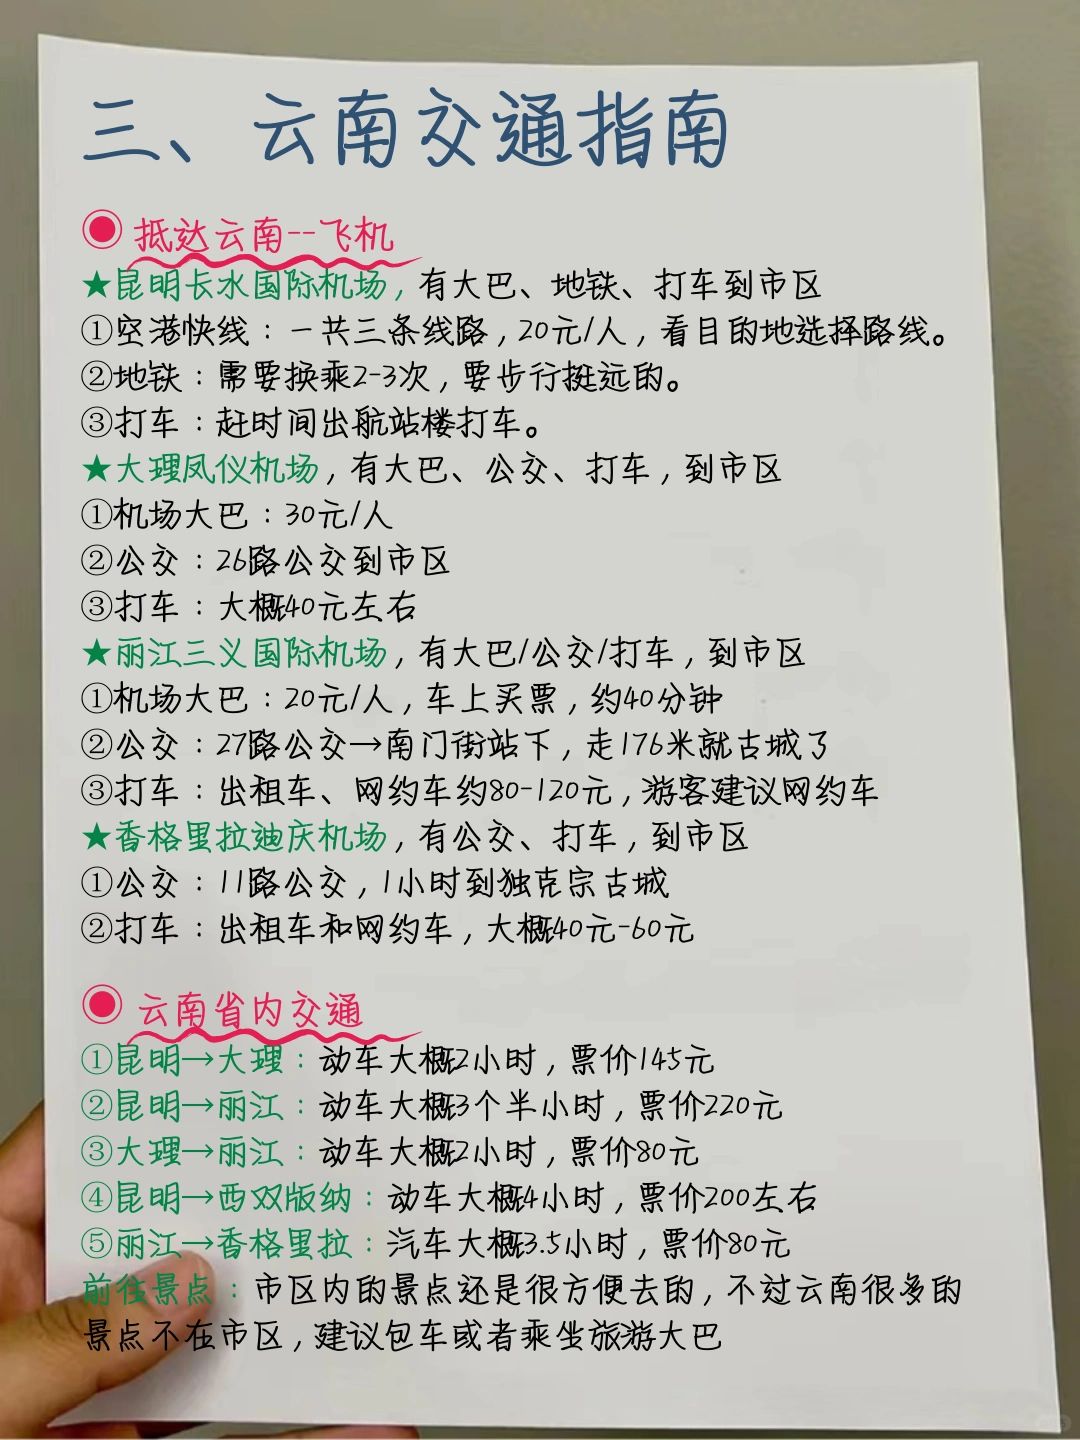 三、云南交通指南
抵达云南--飞机
★昆明长水国际机场，有大巴、地铁、打车到市区
①空港快线：一共三条线路，20元/人，看目的地选择路线。
②地铁：需要换乘2-3次，要步行挺远的。
③打车：赶时间出航站楼打车。
★大理凤仪机场，有大巴、公交、打车，到市区
①机场大巴：30元/人
②公交：26路公交到市区
③打车：大概40元左右
★丽江三义国际机场，有大巴/公交/打车，到市区
①机场大巴：20元/人，车上买票，约40分钟
②公交：27路公交→南门街站下，走176米就古城了
③打车：出租车、网约车约80-120元，游客建议网约车
★香格里拉迪庆机场，有公交、打车，到市区
①公交：11路公交，1小时到独克宗古城
②打车：出租车和网约车，大概40元-60元
云南省内交通
①昆明→大理：动车大概2小时，票价145元
②昆明→丽江：动车大概3个半小时，票价220元
③大理→丽江：动车大概2小时，票价80元
④昆明→西双版纳：动车大概4小时，票价200左右
⑤丽江→香格里拉：汽车大概3.5小时，票价80元
前往景点：市区内的景点还是很方便去的，不过云南很多的
景点不在市区，建议包车或者乘坐旅游大巴